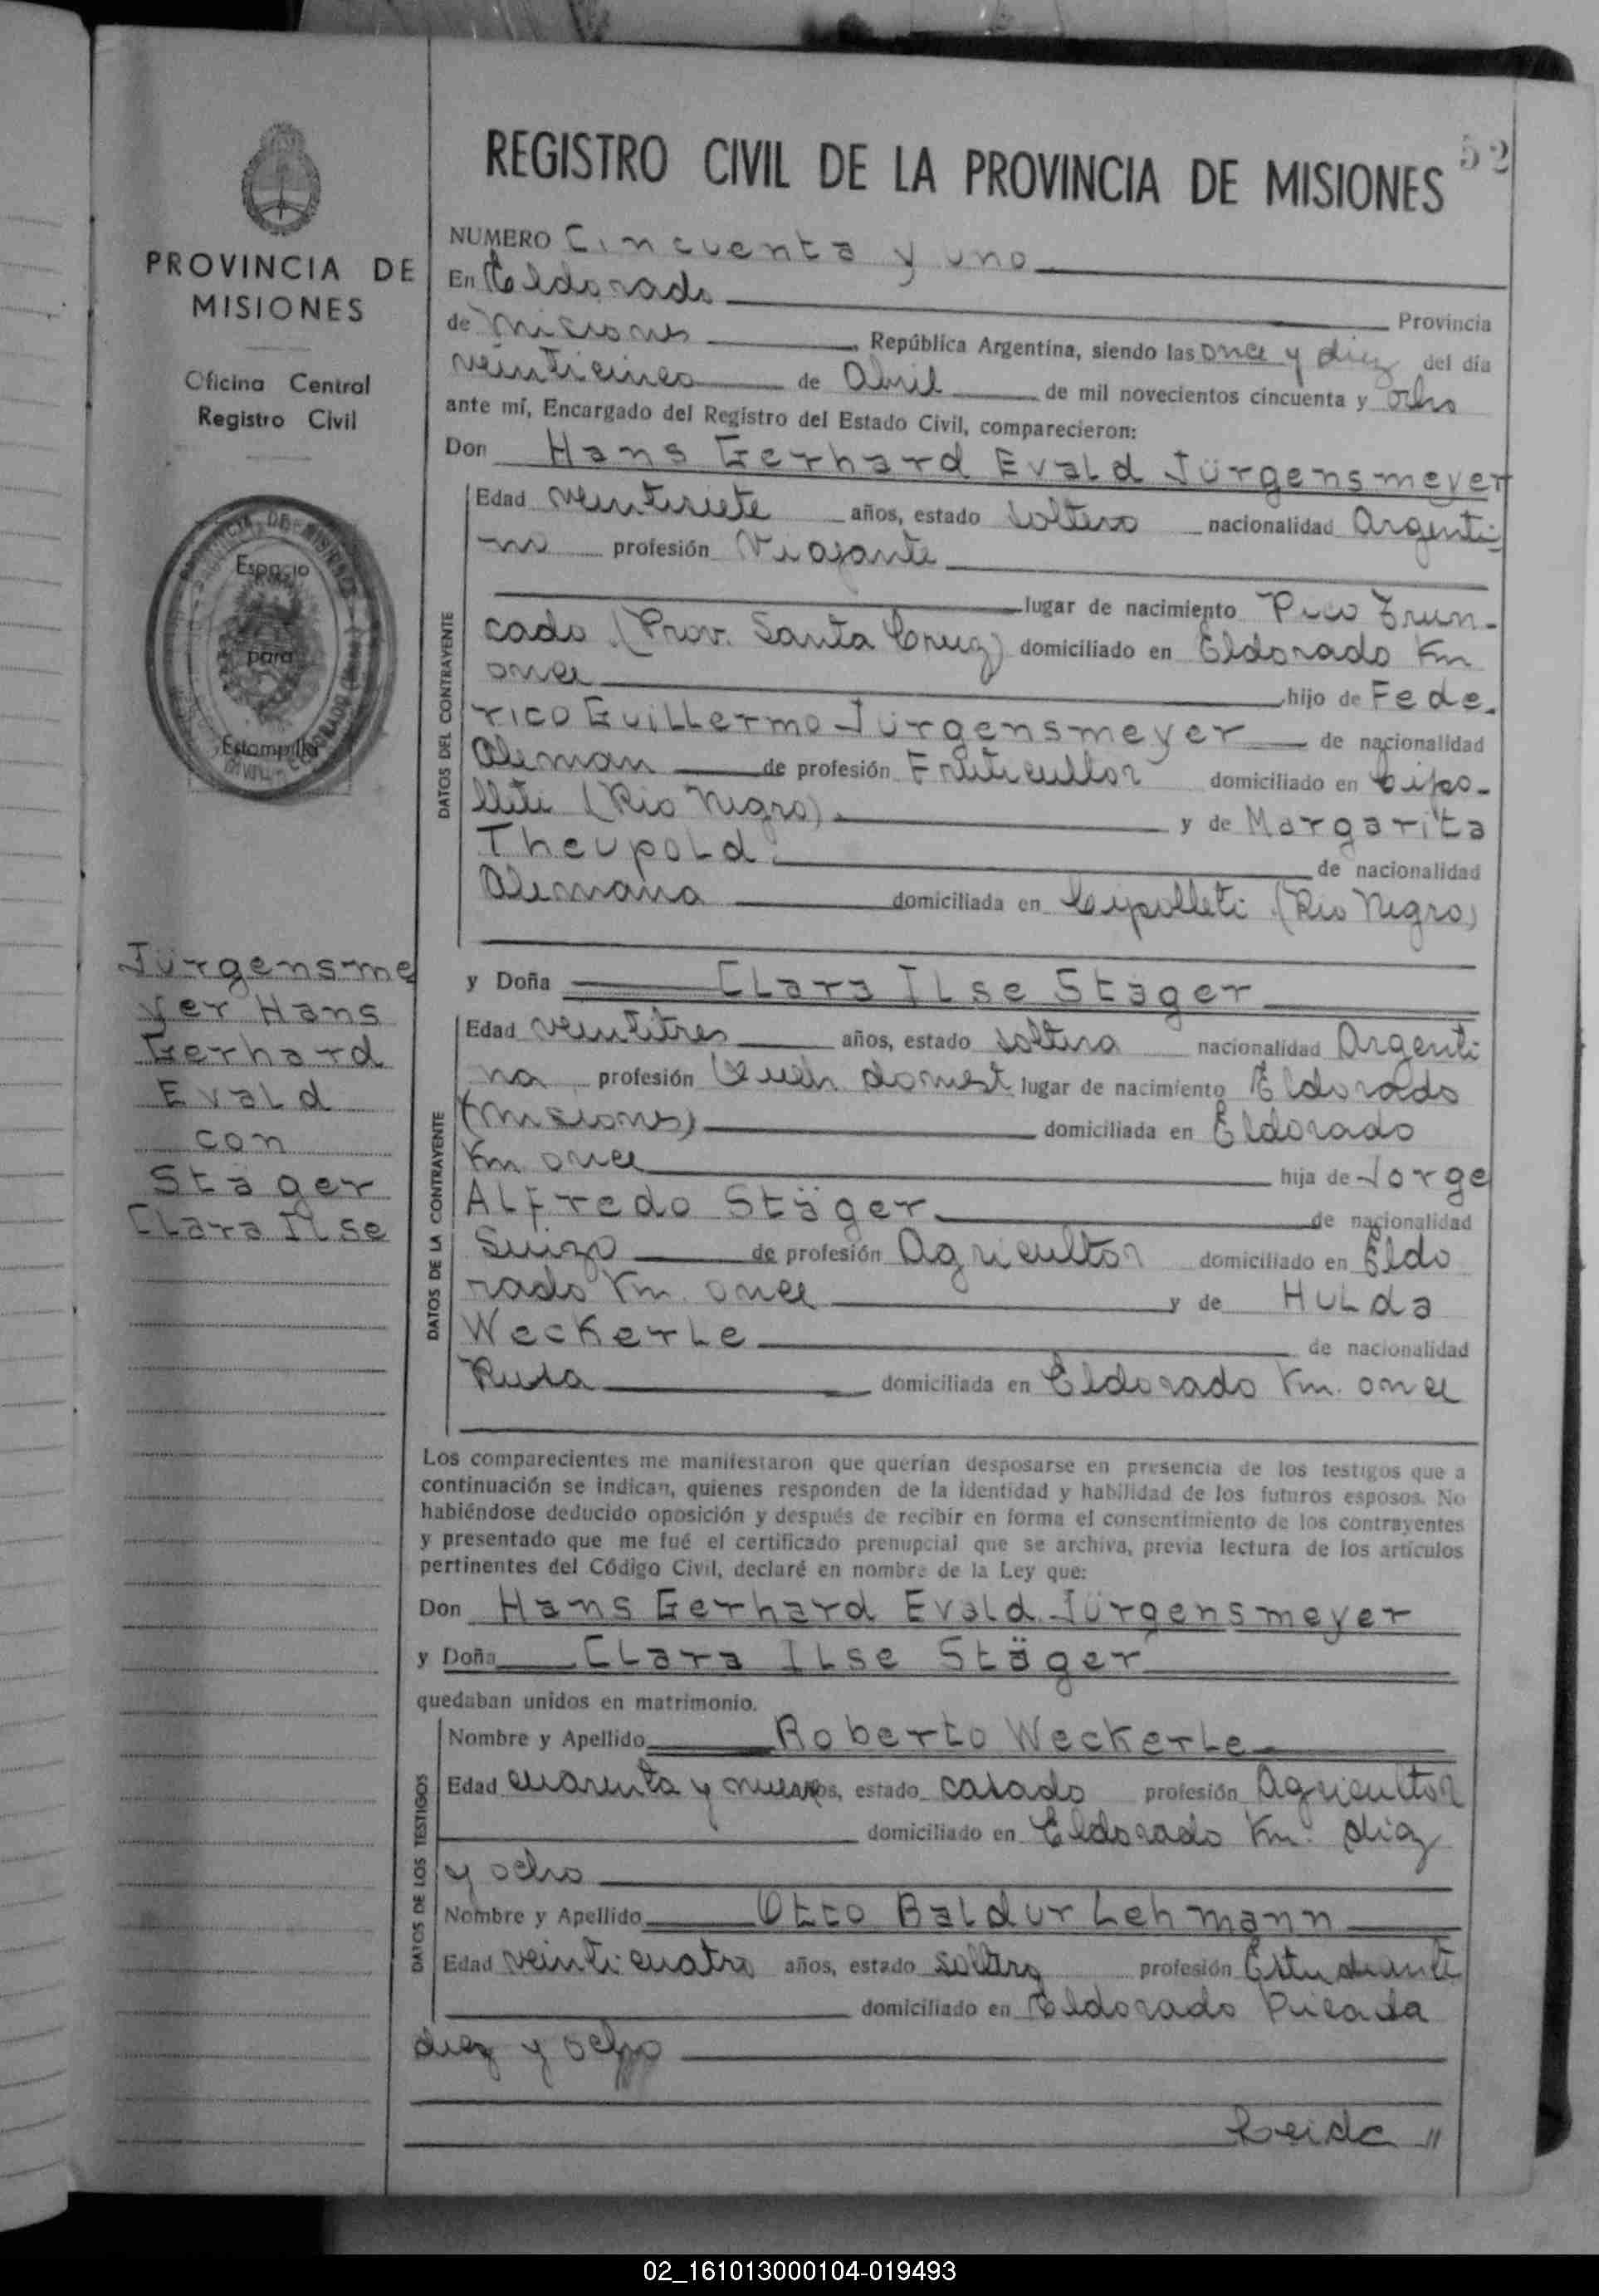 52
REGISTRO CIVIL DE LA PROVINCIA DE MISIONES
PROVINCIA DE
MISIONES
Oficina Central
Registro Civil
Espacio
para
Estampilla
Jürgensme
yer Hans
Gerhard
Evald
con
Stäger
Clara Ilse
NUMERO Cincuenta y uno
En Eldorado Provincia
de Misiones República Argentina, siendo las once y diez del día
veinticinco de Abril de mil novecientos cincuenta y ocho
ante mí, Encargado del Registro del Estado Civil, comparecieron:
Don Hans Gerhard Evald Jürgensmeyer
DATOS DEL CONTRAYENTE
Edad veintisiete años, estado soltero nacionalidad Argenti-
no profesión Viajante
lugar de nacimiento Pico Trun-
cado (Prov. Santa Cruz) domiciliado en Eldorado Km
once hijo de Fede-
rico Guillermo Jürgensmeyer de nacionalidad
Aleman de profesión Fruticultor domiciliado en Cipo-
lleti (Rio Negro) y de Margarita
Theupold de nacionalidad
Alemana domiciliada en Cipolleti (Rio Negro)
y Doña Clara Ilse Stäger
DATOS DE LA CONTRAYENTE
Edad veintitres años, estado soltera nacionalidad Argenti
na profesión Queh domest lugar de nacimiento Eldorado
(Misiones) domiciliada en Eldorado
Km once hija de Jorge
Alfredo Stäger de nacionalidad
Suizo de profesión Agricultor domiciliado en Eldo
rado Km. once y de Hulda
Weckerle de nacionalidad
Rusa domiciliada en Eldorado Km. once
Los comparecientes me manifestaron que querían desposarse en presencia de los testigos que a
continuación se indican, quienes responden de la identidad y habilidad de los futuros esposos. No
habiéndose deducido oposición y después de recibir en forma el consentimiento de los contrayentes
y presentado que me fué el certificado prenupcial que se archiva, previa lectura de los artículos
pertinentes del Código Civil, declaré en nombre de la Ley que:
Don Hans Gerhard Evald Jürgensmeyer
y Doña Clara Ilse Stäger
quedaban unidos en matrimonio.
DATOS DE LOS TESTIGOS
Nombre y Apellido Roberto Weckerle
Edad cuarenta y nueve años, estado casado profesión Agricultor
domiciliado en Eldorado Km. diez
y ocho
Nombre y Apellido Otto Baldur Lehmann
Edad veinticuatro años, estado soltero profesión Estudiante
domiciliado en Eldorado Picada
diez y ocho
Leida //
02_161013000104-019493